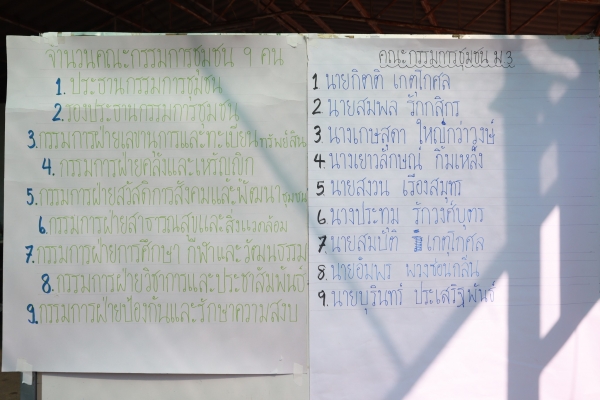 จำนวนคณะกรรมการชุมชน 9 คน
1. ประธานกรรมการชุมชน
2. รองประธานกรรมการชุมชน
3. กรรมการฝ่ายเลขานุการและทะเบียนทรัพย์สิน
4. กรรมการฝ่ายคลังและเหรัญญิก
5. กรรมการฝ่ายสวัสดิการสังคมและพัฒนาชุมชน
6. กรรมการฝ่ายสาธารณสุขและสิ่งแวดล้อม
7. กรรมการฝ่ายการศึกษา กีฬาและวัฒนธรรม
8. กรรมการฝ่ายวิชาการและประชาสัมพันธ์
9. กรรมการฝ่ายป้องกันและรักษาความสงบ
คณะกรรมการชุมชน ม.3
1 นายกิตติ เกตุโกศล
2 นายสมพล รักกสิกร
3. นางเกษสุดา ใหญ่กว่าวงษ์
4 นางเยาวลักษณ์ กิ้มเหล็ง
5 นายสงวน เรืองสมุทร
6. นางประทุม รักวงศ์บุตร
7 นายสมบัติ เกตุโกศล
8. นายอัมพร พวงซ่อนกลิ่น
9. นายบุรินทร์ ประเสริฐพันธ์